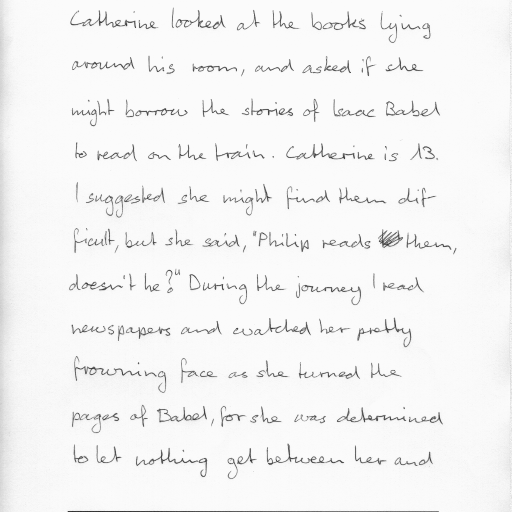 Catherine looked at the books lying
around his room, and asked if she
might borrow the stories of Isaac Babel
to read on the train. Catherine is 13.
I suggested she might find them dif-
ficult, but she said, "Philip reads them,
doesn't he?" During the journey I read
newspapers and watched her pretty
frowning face as she turned the
pages of Babel, for she was determined
to let nothing get between her and